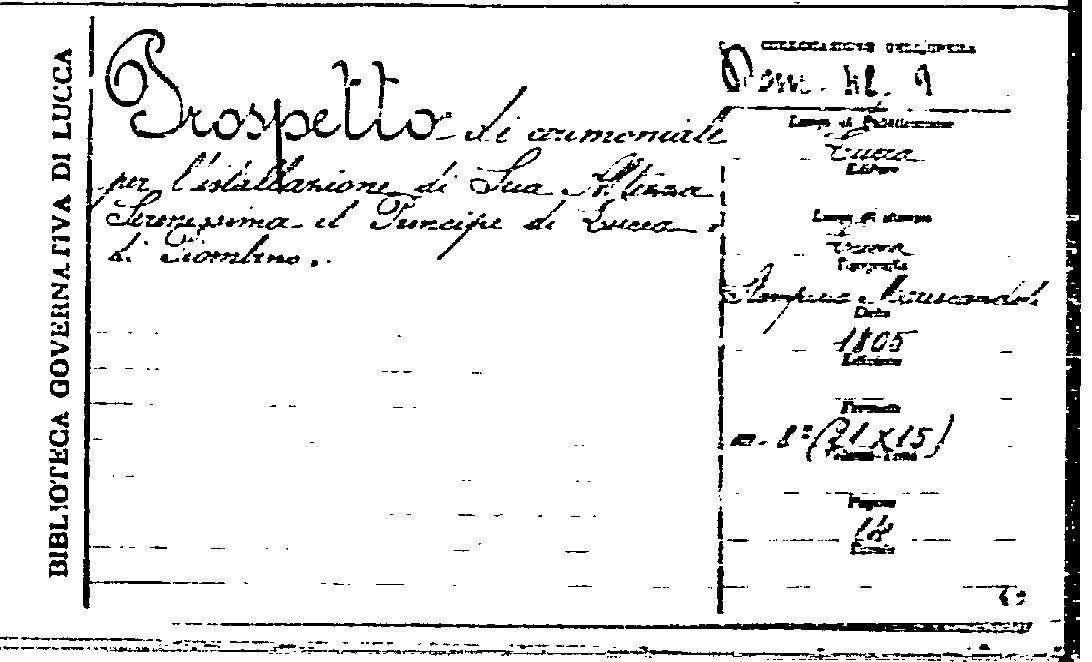 BIBLIOTECA GOVERNATIVA DI LUCCA
Prospetto di cerimoniale
per l'istallazione di Sua Altezza
Serenissima il Principe di Lucca e
di Piombino.
COLLOCAZIONE DELL'OPERA
Luogo di Pubblicazione
Lucca
Editore
Luogo di stampa
Lucca
Tipografia
Stamperia Marescandoli
Data
1805
Edizione
Formato
in-8° (21X15)
Pagine